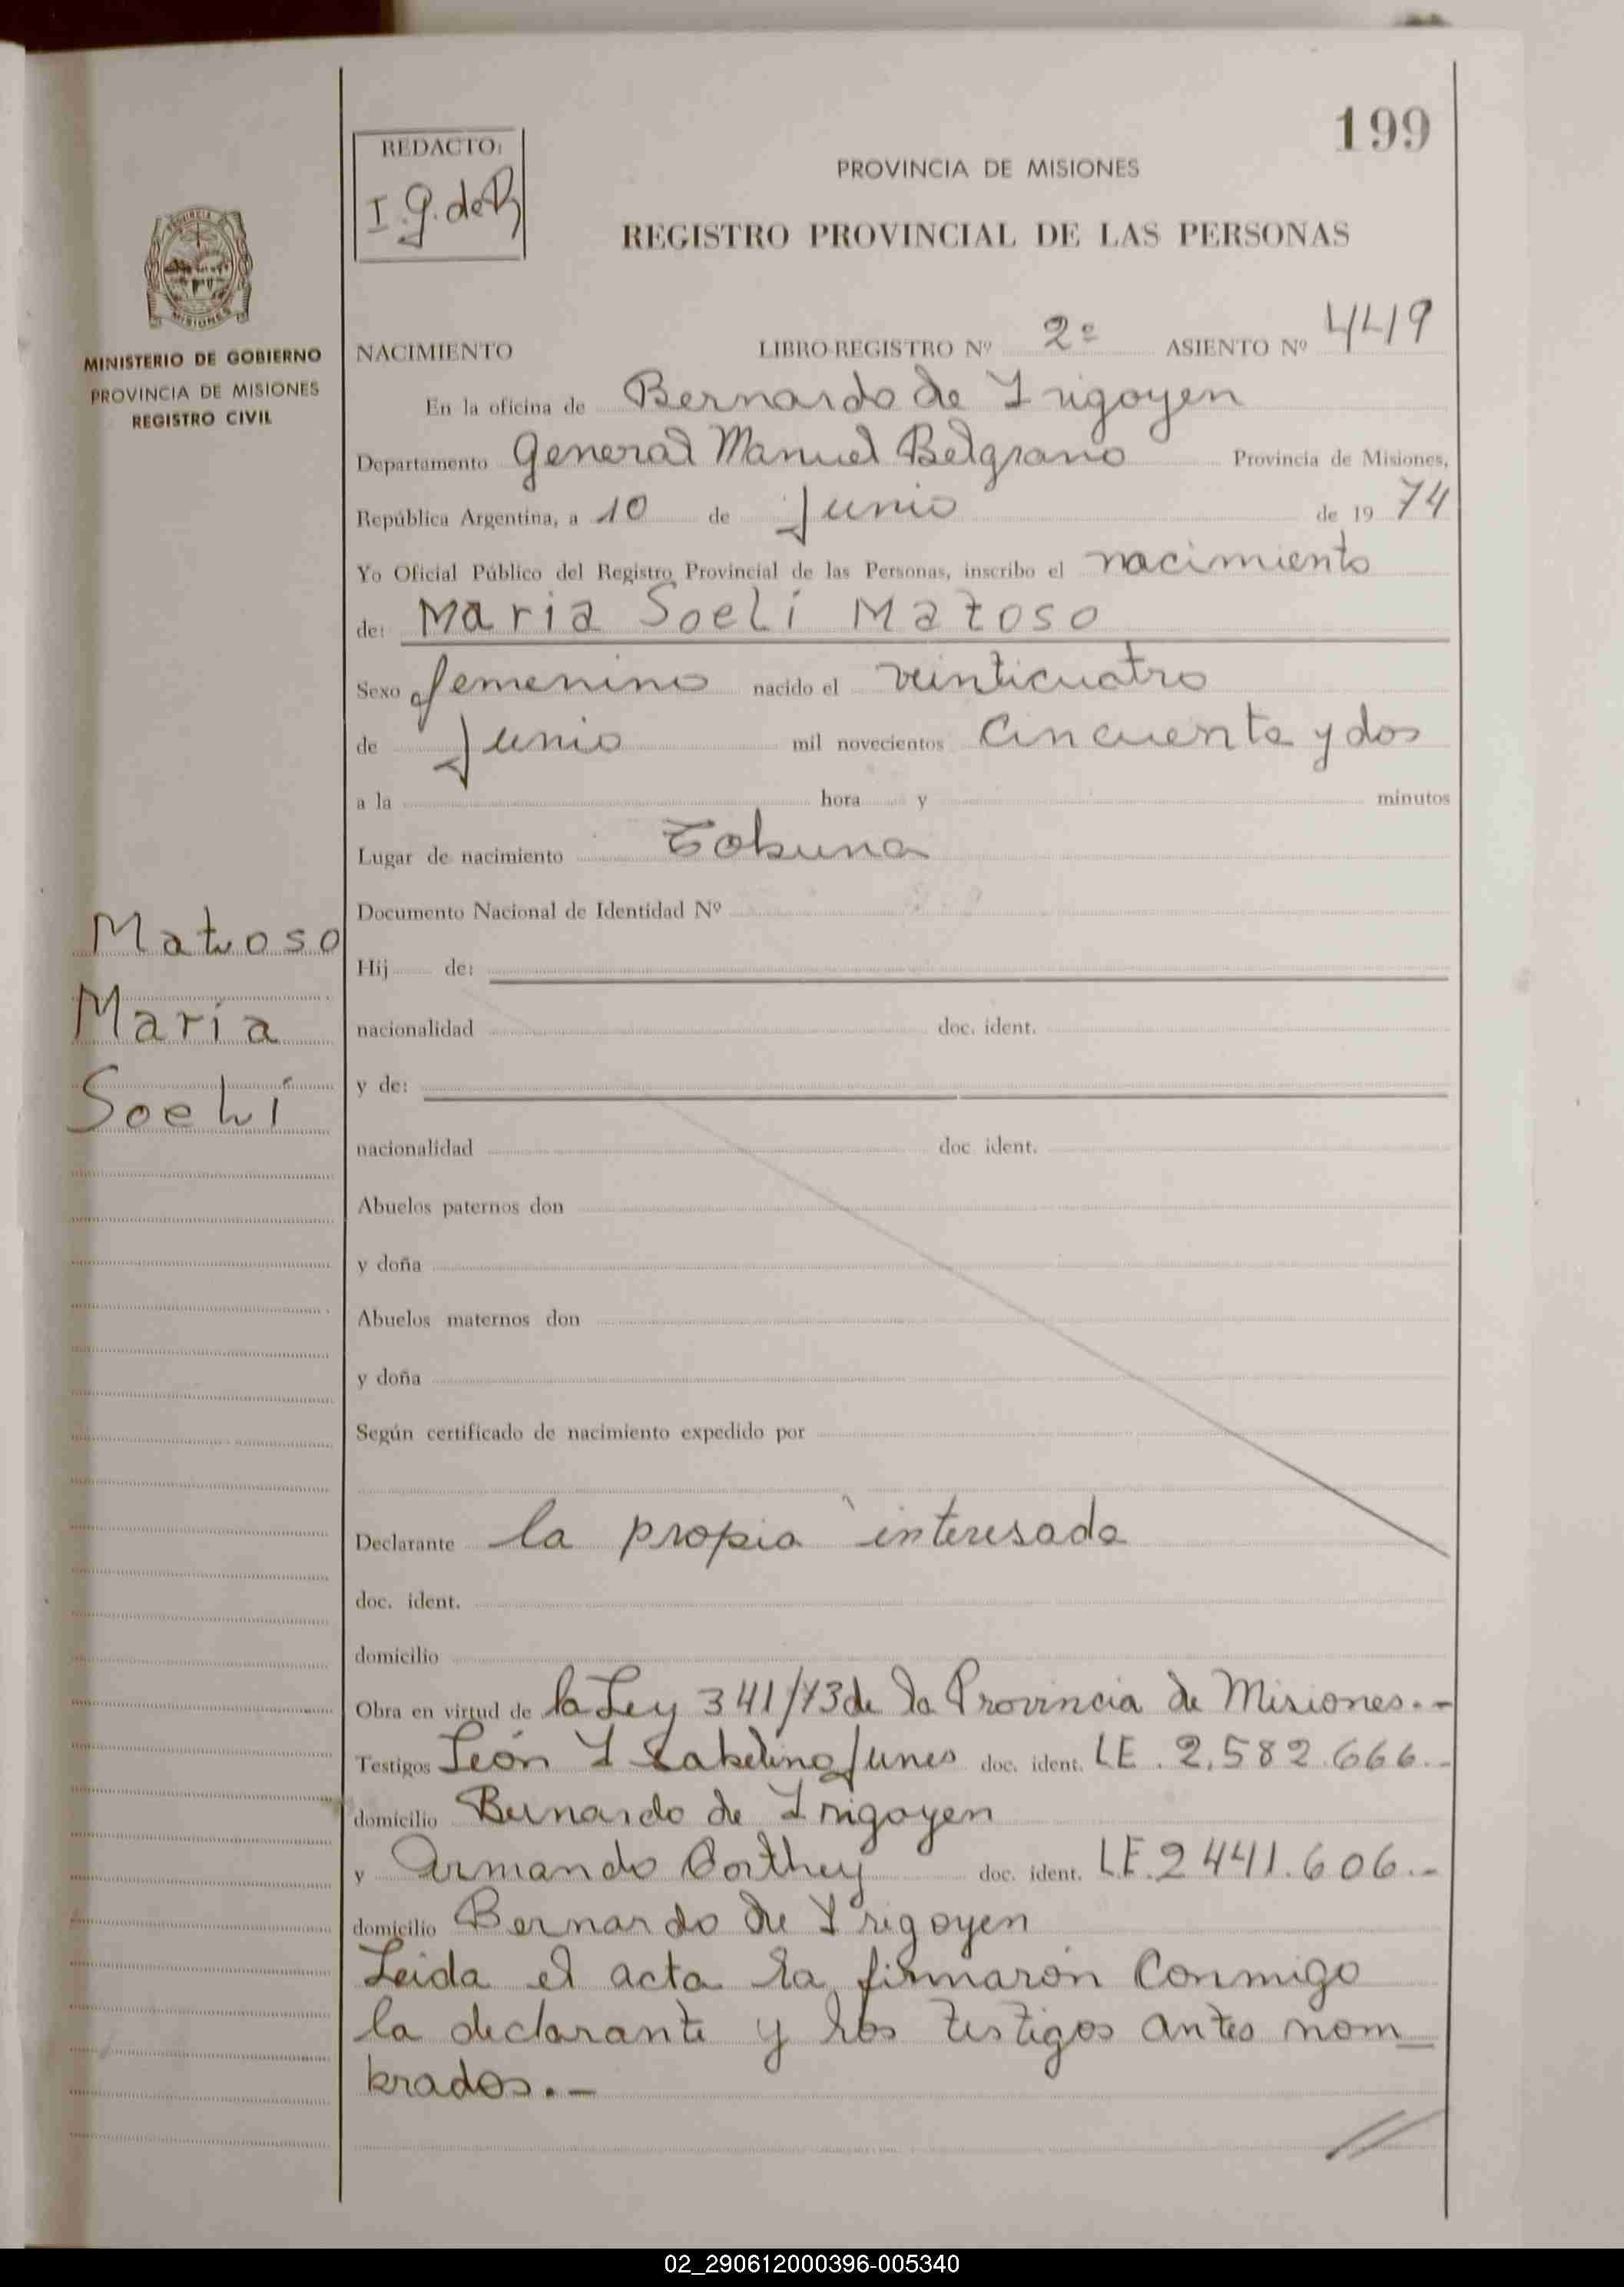 199
REDACTO:
I.g. de R
PROVINCIA DE MISIONES
REGISTRO PROVINCIAL DE LAS PERSONAS
PROVINCIA
MISIONES
MINISTERIO DE GOBIERNO
PROVINCIA DE MISIONES
REGISTRO CIVIL
NACIMIENTO LIBRO-REGISTRO Nº 2º ASIENTO Nº 449
En la oficina de Bernardo de Irigoyen
Departamento General Manuel Belgrano Provincia de Misiones,
República Argentina, a 10 de Junio de 1974
Yo Oficial Público del Registro Provincial de las Personas, inscribo el nacimiento
de: Maria Soelí Matoso
Sexo femenino nacido el veinticuatro
de Junio mil novecientos cincuenta y dos
a la hora y minutos
Lugar de nacimiento Tobuna
Documento Nacional de Identidad Nº
Matoso
María
Soelí
Hij de:
nacionalidad doc. ident.
y de:
nacionalidad doc. ident.
Abuelos paternos don
y doña
Abuelos maternos don
y doña
Según certificado de nacimiento expedido por
Declarante la propia interesada
doc. ident.
domicilio
Obra en virtud de la Ley 341/73 de la Provincia de Misiones.-
Testigos León Isabelino Junes doc. ident. LE. 2.582.666.-
domicilio Bernardo de Irigoyen
y Armando Corthey doc. ident. LE. 2441.606.-
domicilio Bernardo de Irigoyen
Leida el acta la firmaron conmigo
la declarante y los testigos antes nom
brados.-
02_290612000396-005340